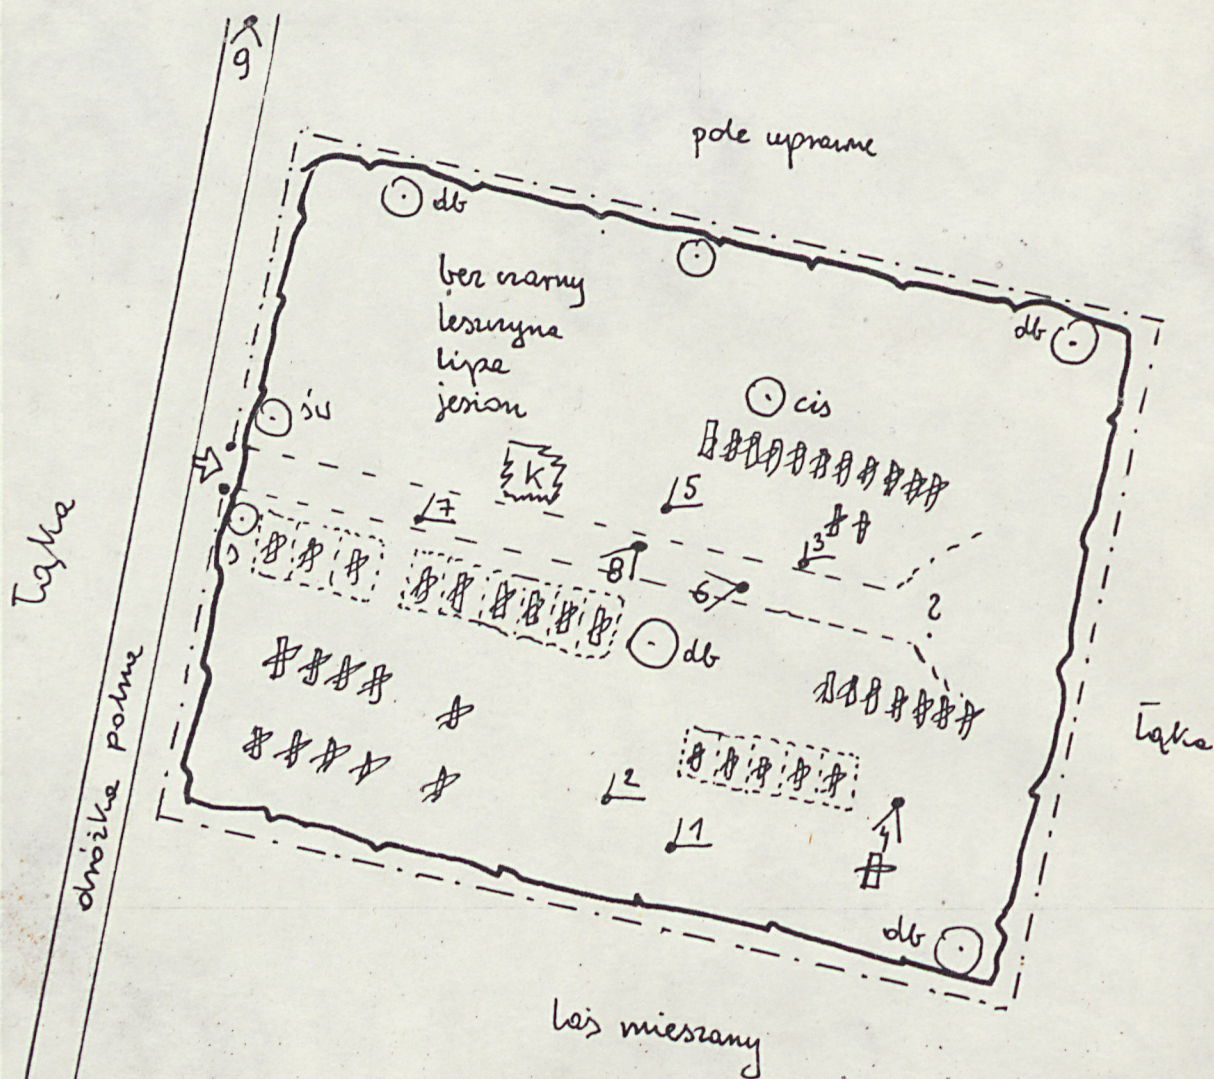 9
pole uprawne
db
bez czarny
leszczyna
lipa
jesion
db
św
cis
K
7
5
3
8
6
?
J
db
Łąka
dróżka polna
Łąka
2
1
4
db
las mieszany